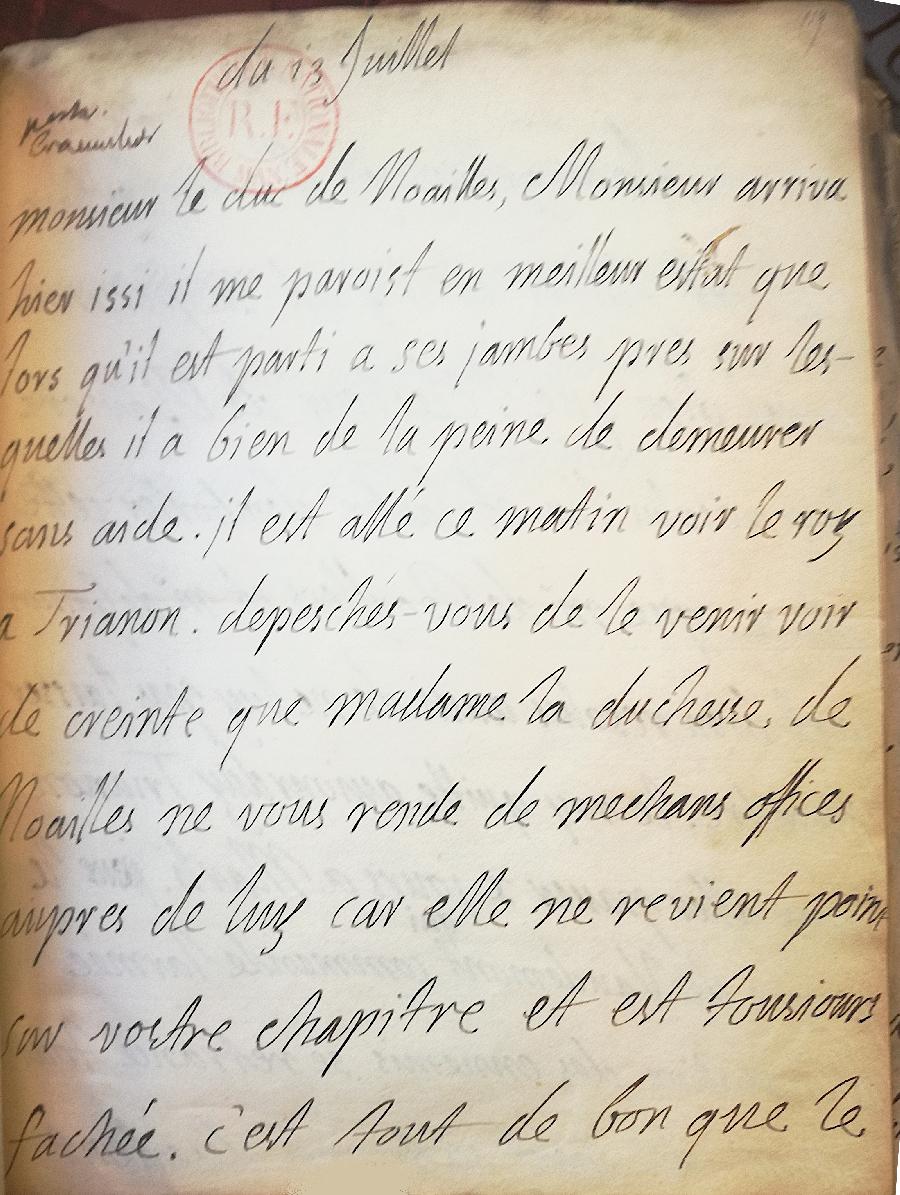 119
du 13 Juillet
R.F.
monsieur le duc de Noailles, Monsieur arriva
hier issi il me paroist en meilleur estat que
lors qu'il est parti a ses jambes pres sur les-
quelles il a bien de la peine de demeurer
sans aide. jl est allé ce matin voir le roy
a Trianon. depeschés-vous de le venir voir
de creinte que madame la duchesse de
Noailles ne vous rende de mechans offices
aupres de luy car elle ne revient point
sur vostre chapitre et est tousiours
fachée. c'est tout de bon que le